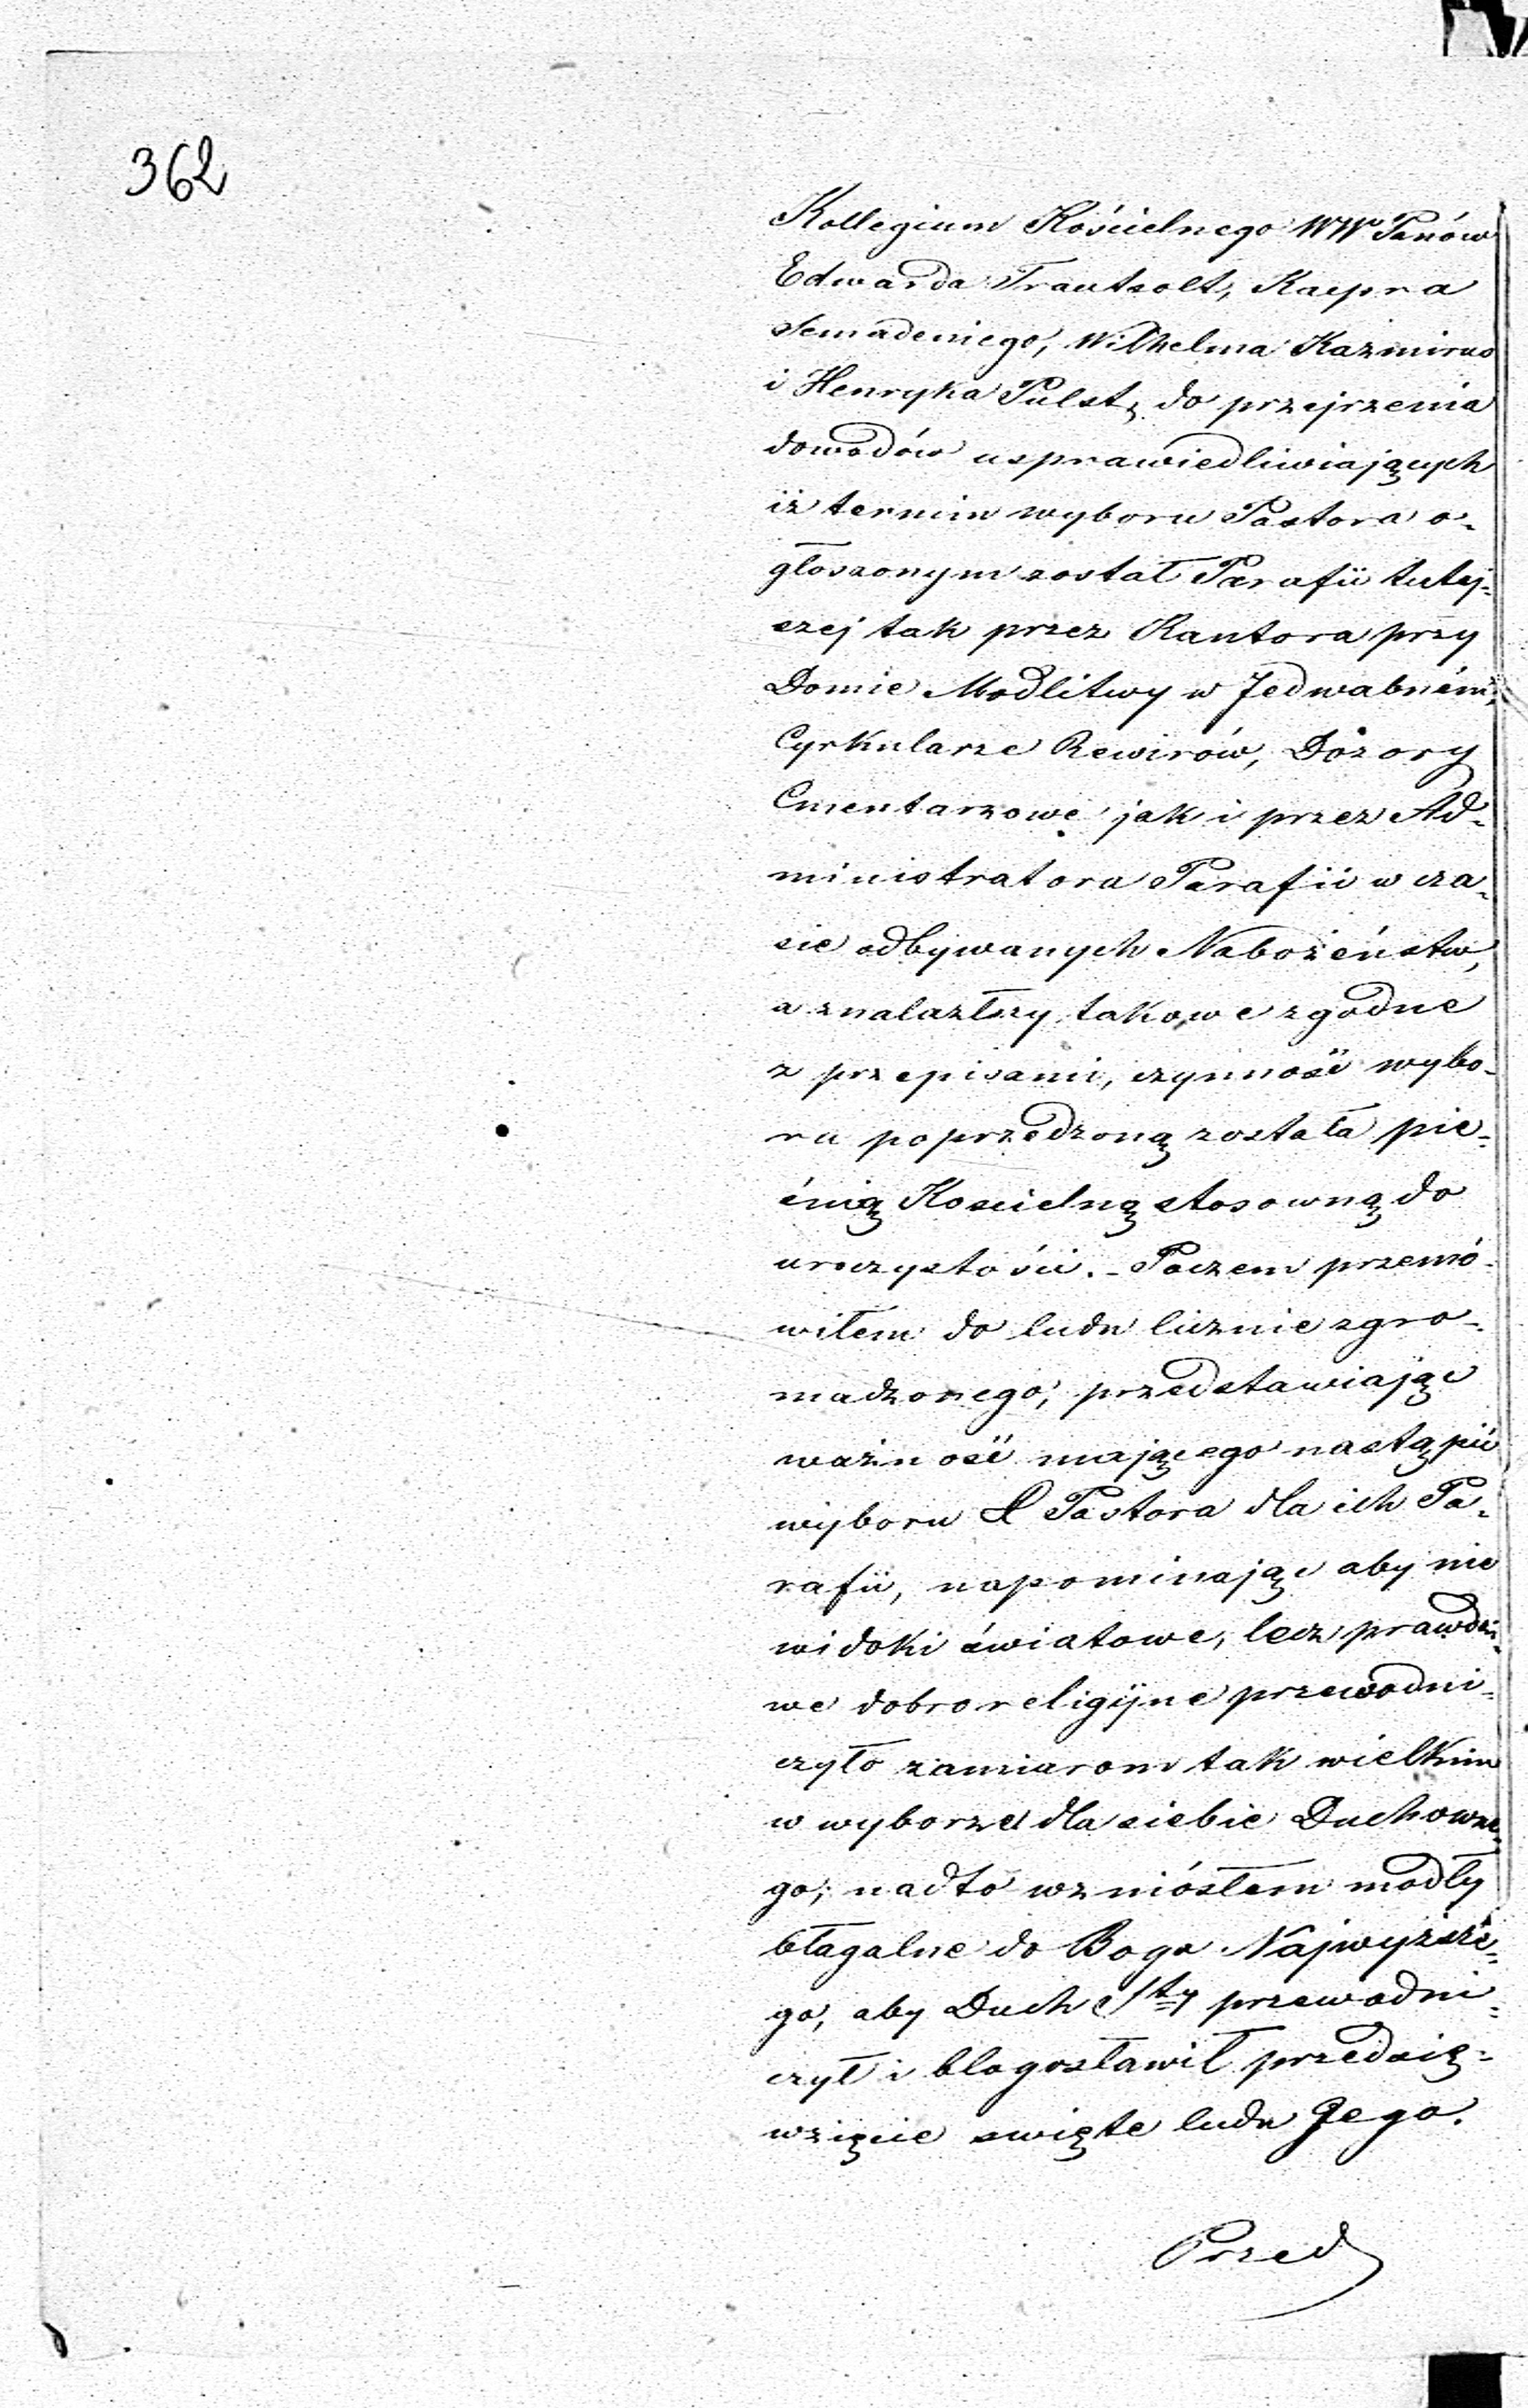 362
Kollegium Kościelnego WW Panów
Edwarda Trautsolt, Kacpra
Semadeniego, Wilhelma Kazmirus
i Henryka Pulst, do przejrzenia
dowodów usprawiedliwiających
iż termin wyboru Pastora o-
głoszonym został Parafii tutej-
szej tak przez Kantora przy
Domie Modlitwy w Jedwabném,
Cyrkularze Rewirów, Dozory
Cmentarzowe jak i przez Ad-
ministratora Parafii w cza-
sie odbywanych Nabożeństw,
a znalazłszy takowe zgodne
z przepisami, czynność wybo-
ru poprzedzoną została pie-
śnią Koscielną stosowną do
uroczystości. - Poczem przemó-
wiłem do ludu licznie zgro-
madzonego, przedstawiając
ważność mającego nastąpić
wyboru Pastora dla ich Pa-
rafii, napominając aby nie
widoki światowe, lecz prawdzi-
we dobro religijne przewodni-
czyło zamiarom tak wielkim
w wyborze dla siebie Duchowne-
go; nadto wzniósłem modły
błagalne do Boga Najwyższe-
go, aby Duch Sty przewodni-
czył i błogosławił przedsię-
wzięcie swięte ludu Jego.
Przed